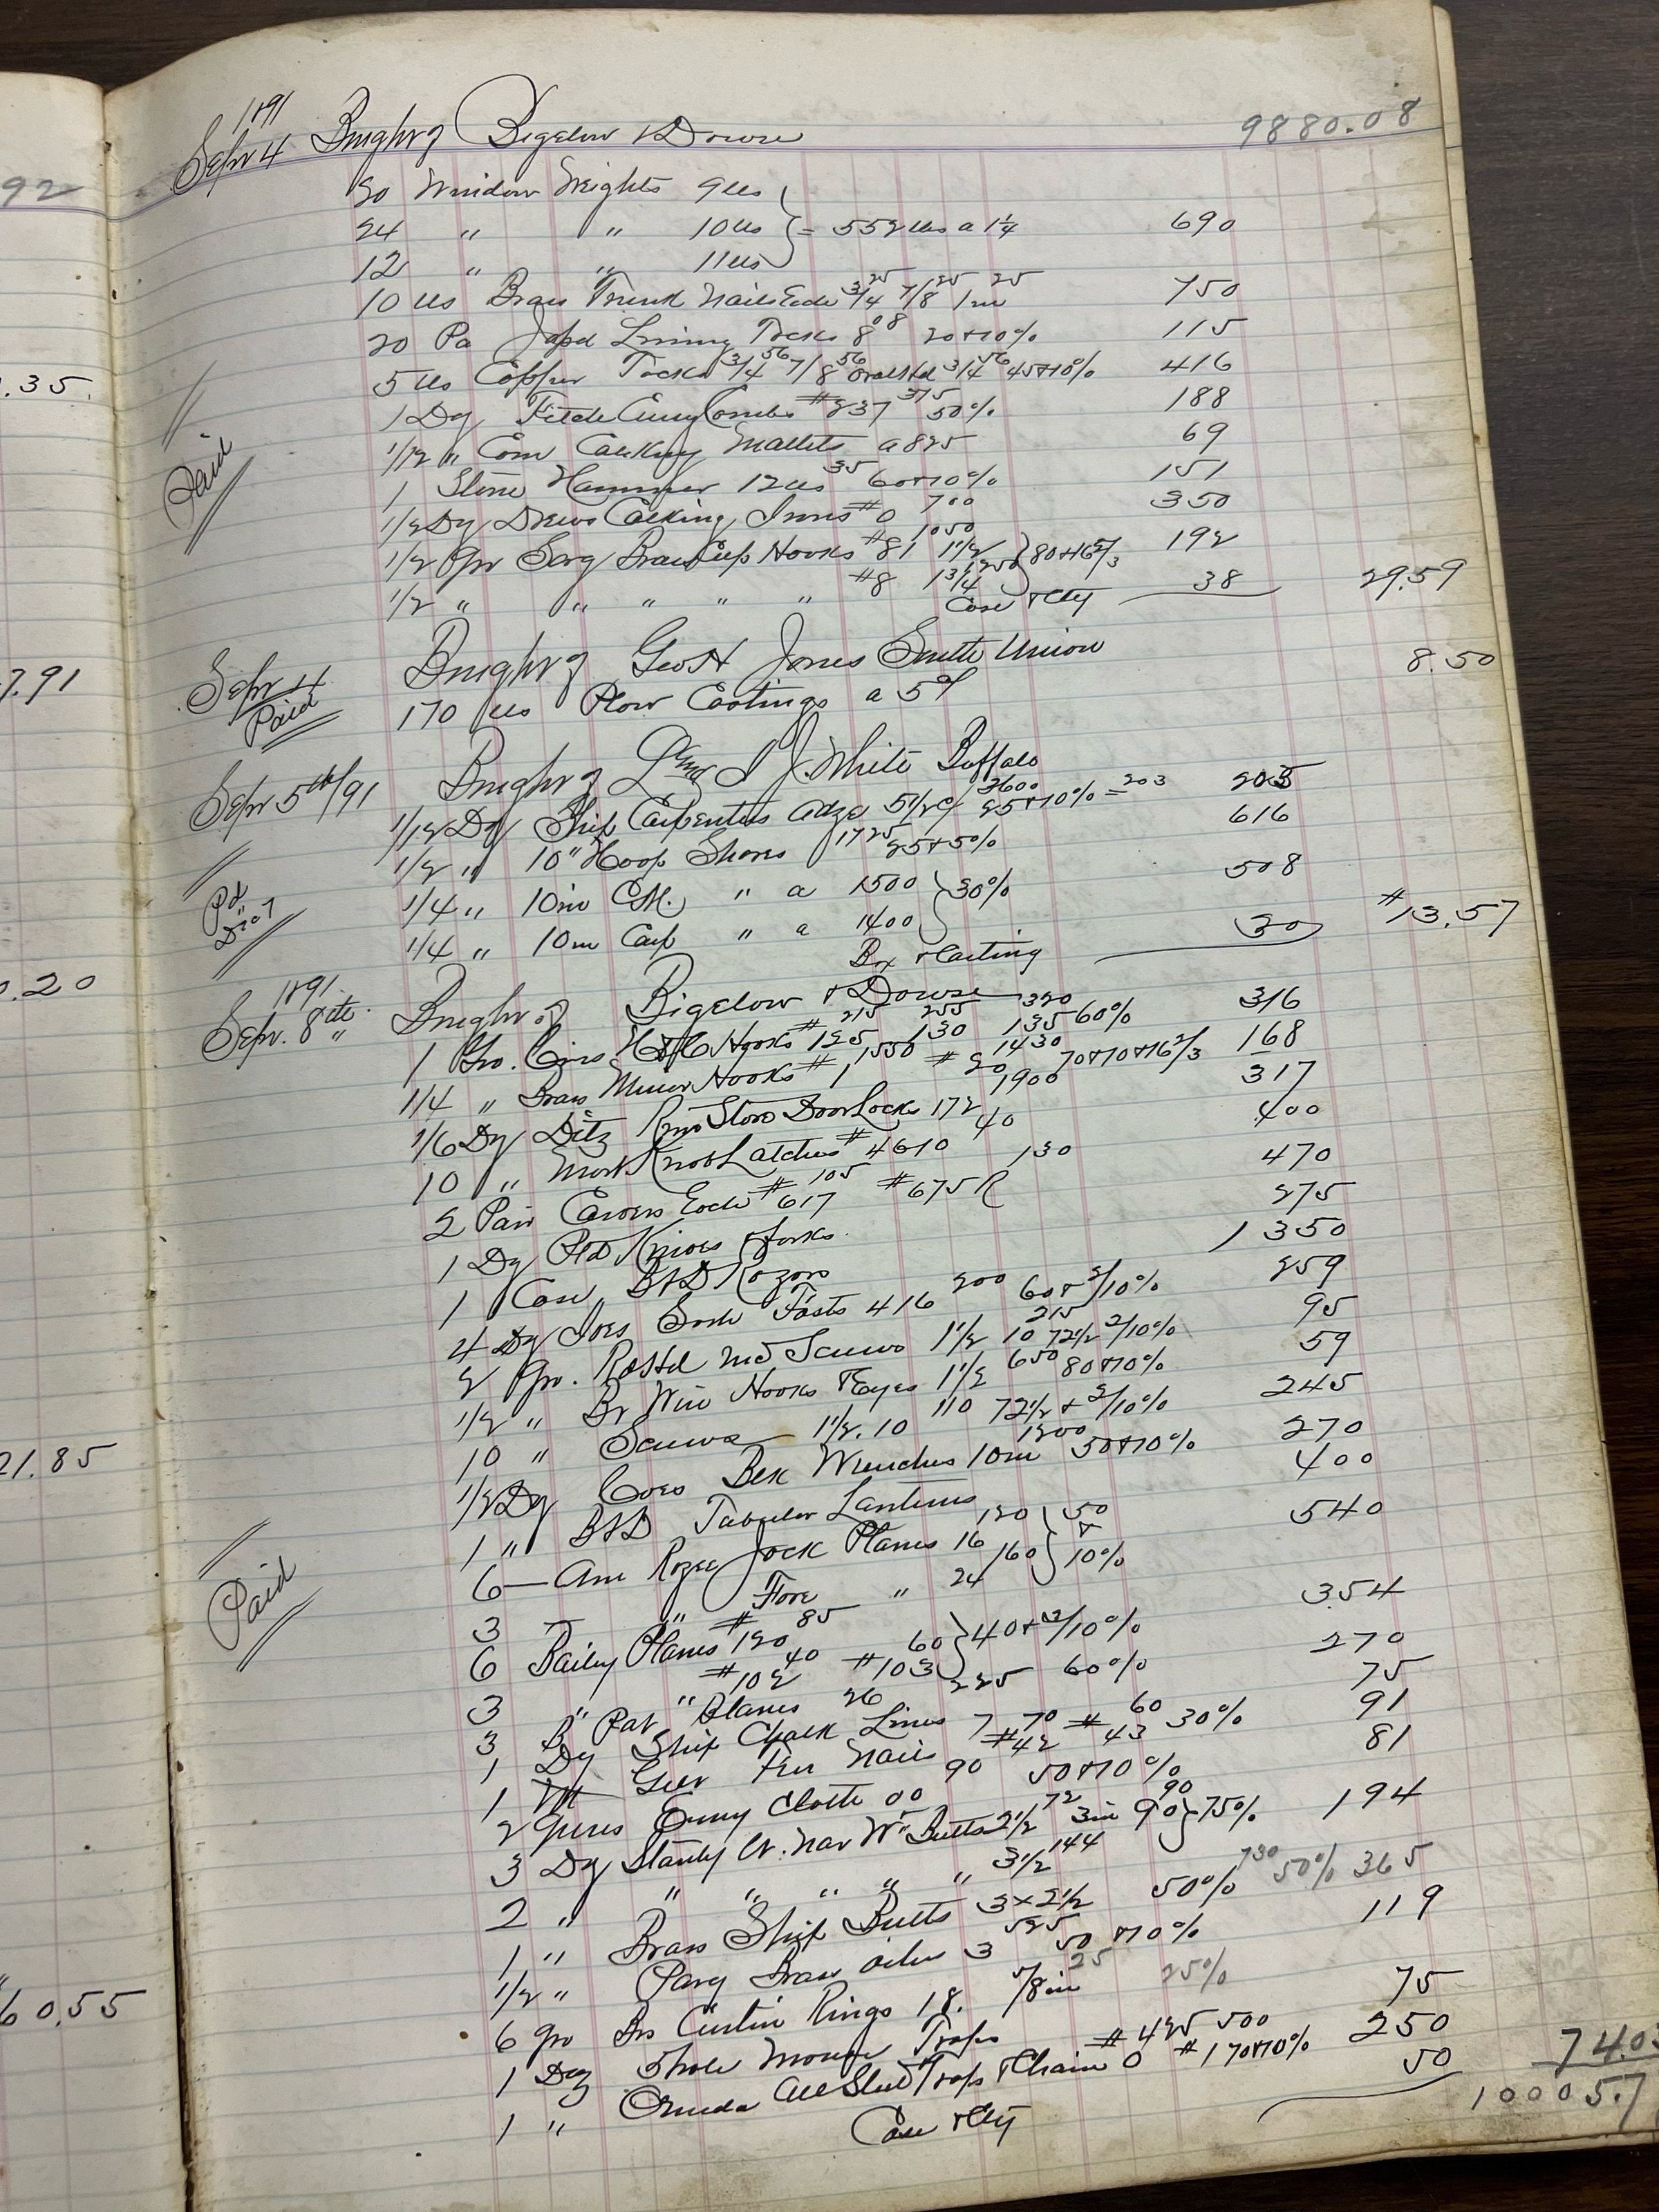 92
.35.
7.91
0.20
21.85
60.55
1891
Sepr 4 Bought of Bigelow & Dowse 9880.08
30 Window Weights 9 lbs
24 " " 10 lbs } = 552 lbs a 1¼ 690
12 " " 11 lbs
10 lbs Brass Trunk Nails Each 3/4 25 7/8 25 1 in 25 750
20 Pa Japd Lining Tacks 8 08 20 & 10% 115
5 lbs Copper Tacks 3/4 56 7/8 56 3/4 56 45 & 10% 416
1 Dz Curry Combs # 237 375 50% 188
1/12 " Com Caulking Mallets a 825 69
1 Stone Hammer 12 lbs 35 60 & 10% 151
1/2 Dz Drews Calking Irons # 0 700 350
1/2 Gro Brass Cup Hooks # 81 1050 1 1/2 } 80 & 16 2/3 192
1/2 " " " " " # 8 1 3/4 1250
Case & Ctg 38 29.59
Paid
Sepr 4 Bought of Geo H Jones South Union
Paid 170 lbs Plow Castings a 5¢ 8.50
Sepr 5th/91 Bought of L & I J. White Buffalo
1/12 Dz Ship Carpenters Adze 5 1/2 3600 25 & 10% = 203 203
1/2 " 10" Hoop Shaves 1725 25 & 5% 616
1/4 " 10 in C.H. " a 1500 } 30% 508
1/4 " 10 in Carp " a 1400
Box & Carting 30 # 13.57
Pd
1891
Sepr. 8th " Bought of Bigelow & Dowse
1 Gro. H & C Hooks # 125 215 130 255 135 320 60% 316
1/4 " Brass Mirror Hooks # 1 1550 # 20 1430 70 & 10 & 16 2/3 168
1/6 Dz Ditz Rim Store Door Locks 172 1900 317
10 " Mort Knob Latches # 4610 40 400
2 Pair Carvers Each # 617 105 # 675 R 130 470
1 Dz Knives & Forks 275
1 Case B&D Razors 1350
4 Dz Ives Sash Fasts 416 200 60 & 2/10% 259
2 Gro. Screws 1 1/2 10 215 72 1/2 2/10% 95
1/2 " Br Wire Hooks & Eyes 1 1/2 650 80 & 10% 59
10 " Screws 1 1/2.10 110 72 1/2 & 2/10% 245
1/2 Dz Coes Blk Wrenches 10 in 1200 50 & 10% 270
1 " B&D Tubular Lanterns 400
6 — Jack Planes 16 120 } 50 & 10% 540
3 — " Fore " 24 160
6 Bailey Planes # 120 85 60 } 40 & 2/10% 354
3 " " # 102 40 # 103
3 B Pat Planes 26 225 60% 270
1 Dz Ship Chalk Lines 7 75
1 Nails # 42 70 # 43 60 30% 91
2 Quires Emery Cloth 00 90 50 & 10% 81
3 Dz Stanly Butts 2 1/2 72 3 in 90 90 } 75%
2 " " " " " " 3 1/2 144 194
1 " Brass Ship Butts 3 x 2 1/2 50% 730 50% 365
1/2 " Brass Oiler 3 525 50 & 10% 119
6 Gro Brs Curtin Rings 18. 5/8 in 25 25%
1 Doz 5 hole Mouse Traps 75
1 " Oneida All Steel Traps & Chain 0 # 425 # 1 500 70 & 10% 250
Case & Ctg 50 74.03
Paid 10005.7